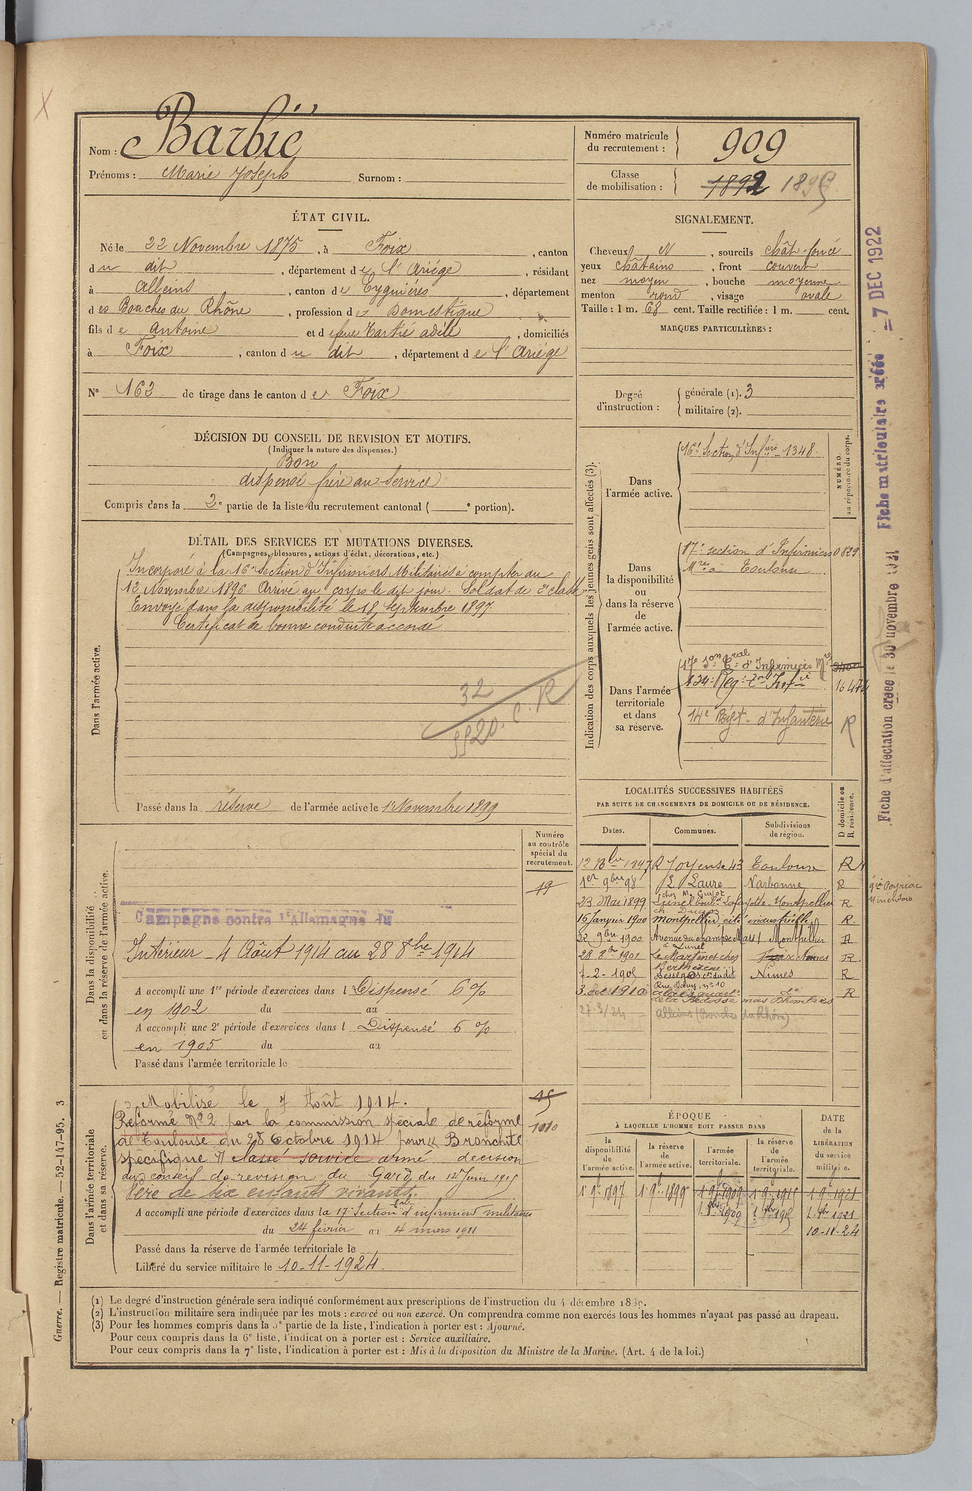 Nom : Barbié
Prénoms : Marie Joseph Surnom :
Numéro matricule du recrutement : 909
Classe de mobilisation : 1892 189
ÉTAT CIVIL.
Né le 22 Novembre 1875, à Foix, canton
du dit, département de l'Ariège, résidant
à Alleins, canton de Eyguières, département
des Bouches du Rhône, profession de Domestique
fils de Antoine et de Adèle, domiciliés
à Foix, canton du dit, département de l'Ariège
N° 163 de tirage dans le canton de Foix
SIGNALEMENT.
Cheveux N, sourcils chât-foncé
yeux châtains, front couvert
nez moyen, bouche moyenne
menton rond, visage ovale
Taille : 1 m. 68 cent. Taille rectifiée : 1 m. cent.
MARQUES PARTICULIÈRES :
Degré d'instruction : générale (1). 3
militaire (2).
DÉCISION DU CONSEIL DE REVISION ET MOTIFS.
(Indiquer la nature des dispenses.)
Bon
dispensé frère au service
Compris dans la 2e partie de la liste du recrutement cantonal ( e portion).
DÉTAIL DES SERVICES ET MUTATIONS DIVERSES.
(Campagnes, blessures, actions d'éclat, décorations, etc.)
Dans l'armée active.
Incorporé à la 16e Section d'Infirmiers Militaires à compter du
12 Novembre 1896 Arrivé au corps le dit jour. Soldat de 2e classe
Envoyé dans la disponibilité le 18 Septembre 1897
Certificat de bonne conduite accordé
32
Passé dans la réserve de l'armée active le 1er Novembre 1899
Indication des corps auxquels les jeunes gens sont affectés (3).
NUMÉRO au répertoire du corps.
Dans l'armée active.
16e Section d'Infirm 1348
Dans la disponibilité ou dans la réserve de l'armée active.
17e section d'Infirmiers 0829
Mres à Toulouse
Dans l'armée territoriale et dans sa réserve.
17e Son Tale d'Infirmiers Mres
134e Rég. Infie
14e Régt d'Infanterie R
Fiche d'affectation créée le 30 novembre 1921 Fiche matriculaire créée = 7 DEC 1922
LOCALITÉS SUCCESSIVES HABITÉES
PAR SUITE DE CHANGEMENTS DE DOMICILE OU DE RÉSIDENCE.
D domicile ou R résidence.
Dates. Communes. Subdivisions de région.
12 Bre 1897 R Joyeuse 43 Toulouse R
1er 9bre 98 Laure Narbonne R
23 Mai 1899 Lunel Montpellier R
16 Janvier 1900 Montpellier R
22 9bre 1900 Avenue du champ de Mars Montpellier R
28 1901 R
7-2-1905 Nîmes R
3 1910 R
Alleins (Bouches du Rhône)
Dans la disponibilité ou dans la réserve de l'armée active.
Numéro au contrôle spécial du recrutement.
19
Campagne contre l'Allemagne du
Intérieur - 4 Août 1914 au 28 8bre 1914
A accompli une 1re période d'exercices dans l Dispensé 6 %
en 1902 du au
A accompli une 2e période d'exercices dans l Dispensé 6 %
en 1905 du au
Passé dans l'armée territoriale le
Dans l'armée territoriale et dans sa réserve.
Mobilisé le 7 Août 1914.
Réformé N°2 par la commission spéciale de réforme
de Toulouse du 28 Octobre 1914 pour « Bronchite
spécifique » classé service armé décision
du conseil de revision du Gard du 14 Juin 1915
Père de six enfants vivants.
A accompli une période d'exercices dans la 17e Section d'infirmiers militaires
du 24 février au 4 mars 1911
Passé dans la réserve de l'armée territoriale le
Libéré du service militaire le 10-11-1924.
ÉPOQUE
À LAQUELLE L'HOMME DOIT PASSER DANS
DATE de la LIBÉRATION du service militaire.
la disponibilité de l'armée active. la réserve de l'armée active. l'armée territoriale. la réserve de l'armée territoriale.
1er 9bre 1897 1er 9bre 1899 1er 9bre 1909 1er 9bre 1915 1 9bre 1921
10-11-24
(1) Le degré d'instruction générale sera indiqué conformément aux prescriptions de l'instruction du 4 décembre 1889.
(2) L'instruction militaire sera indiquée par les mots : exercé ou non exercé. On comprendra comme non exercés tous les hommes n'ayant pas passé au drapeau.
(3) Pour les hommes compris dans la 5e partie de la liste, l'indication à porter est : Ajourné.
Pour ceux compris dans la 6e liste, l'indication à porter est : Service auxiliaire.
Pour ceux compris dans la 7e liste, l'indication à porter est : Mis à la disposition du Ministre de la Marine. (Art. 4 de la loi.)
Guerre. — Registre matricule. — 52-147-95. 3